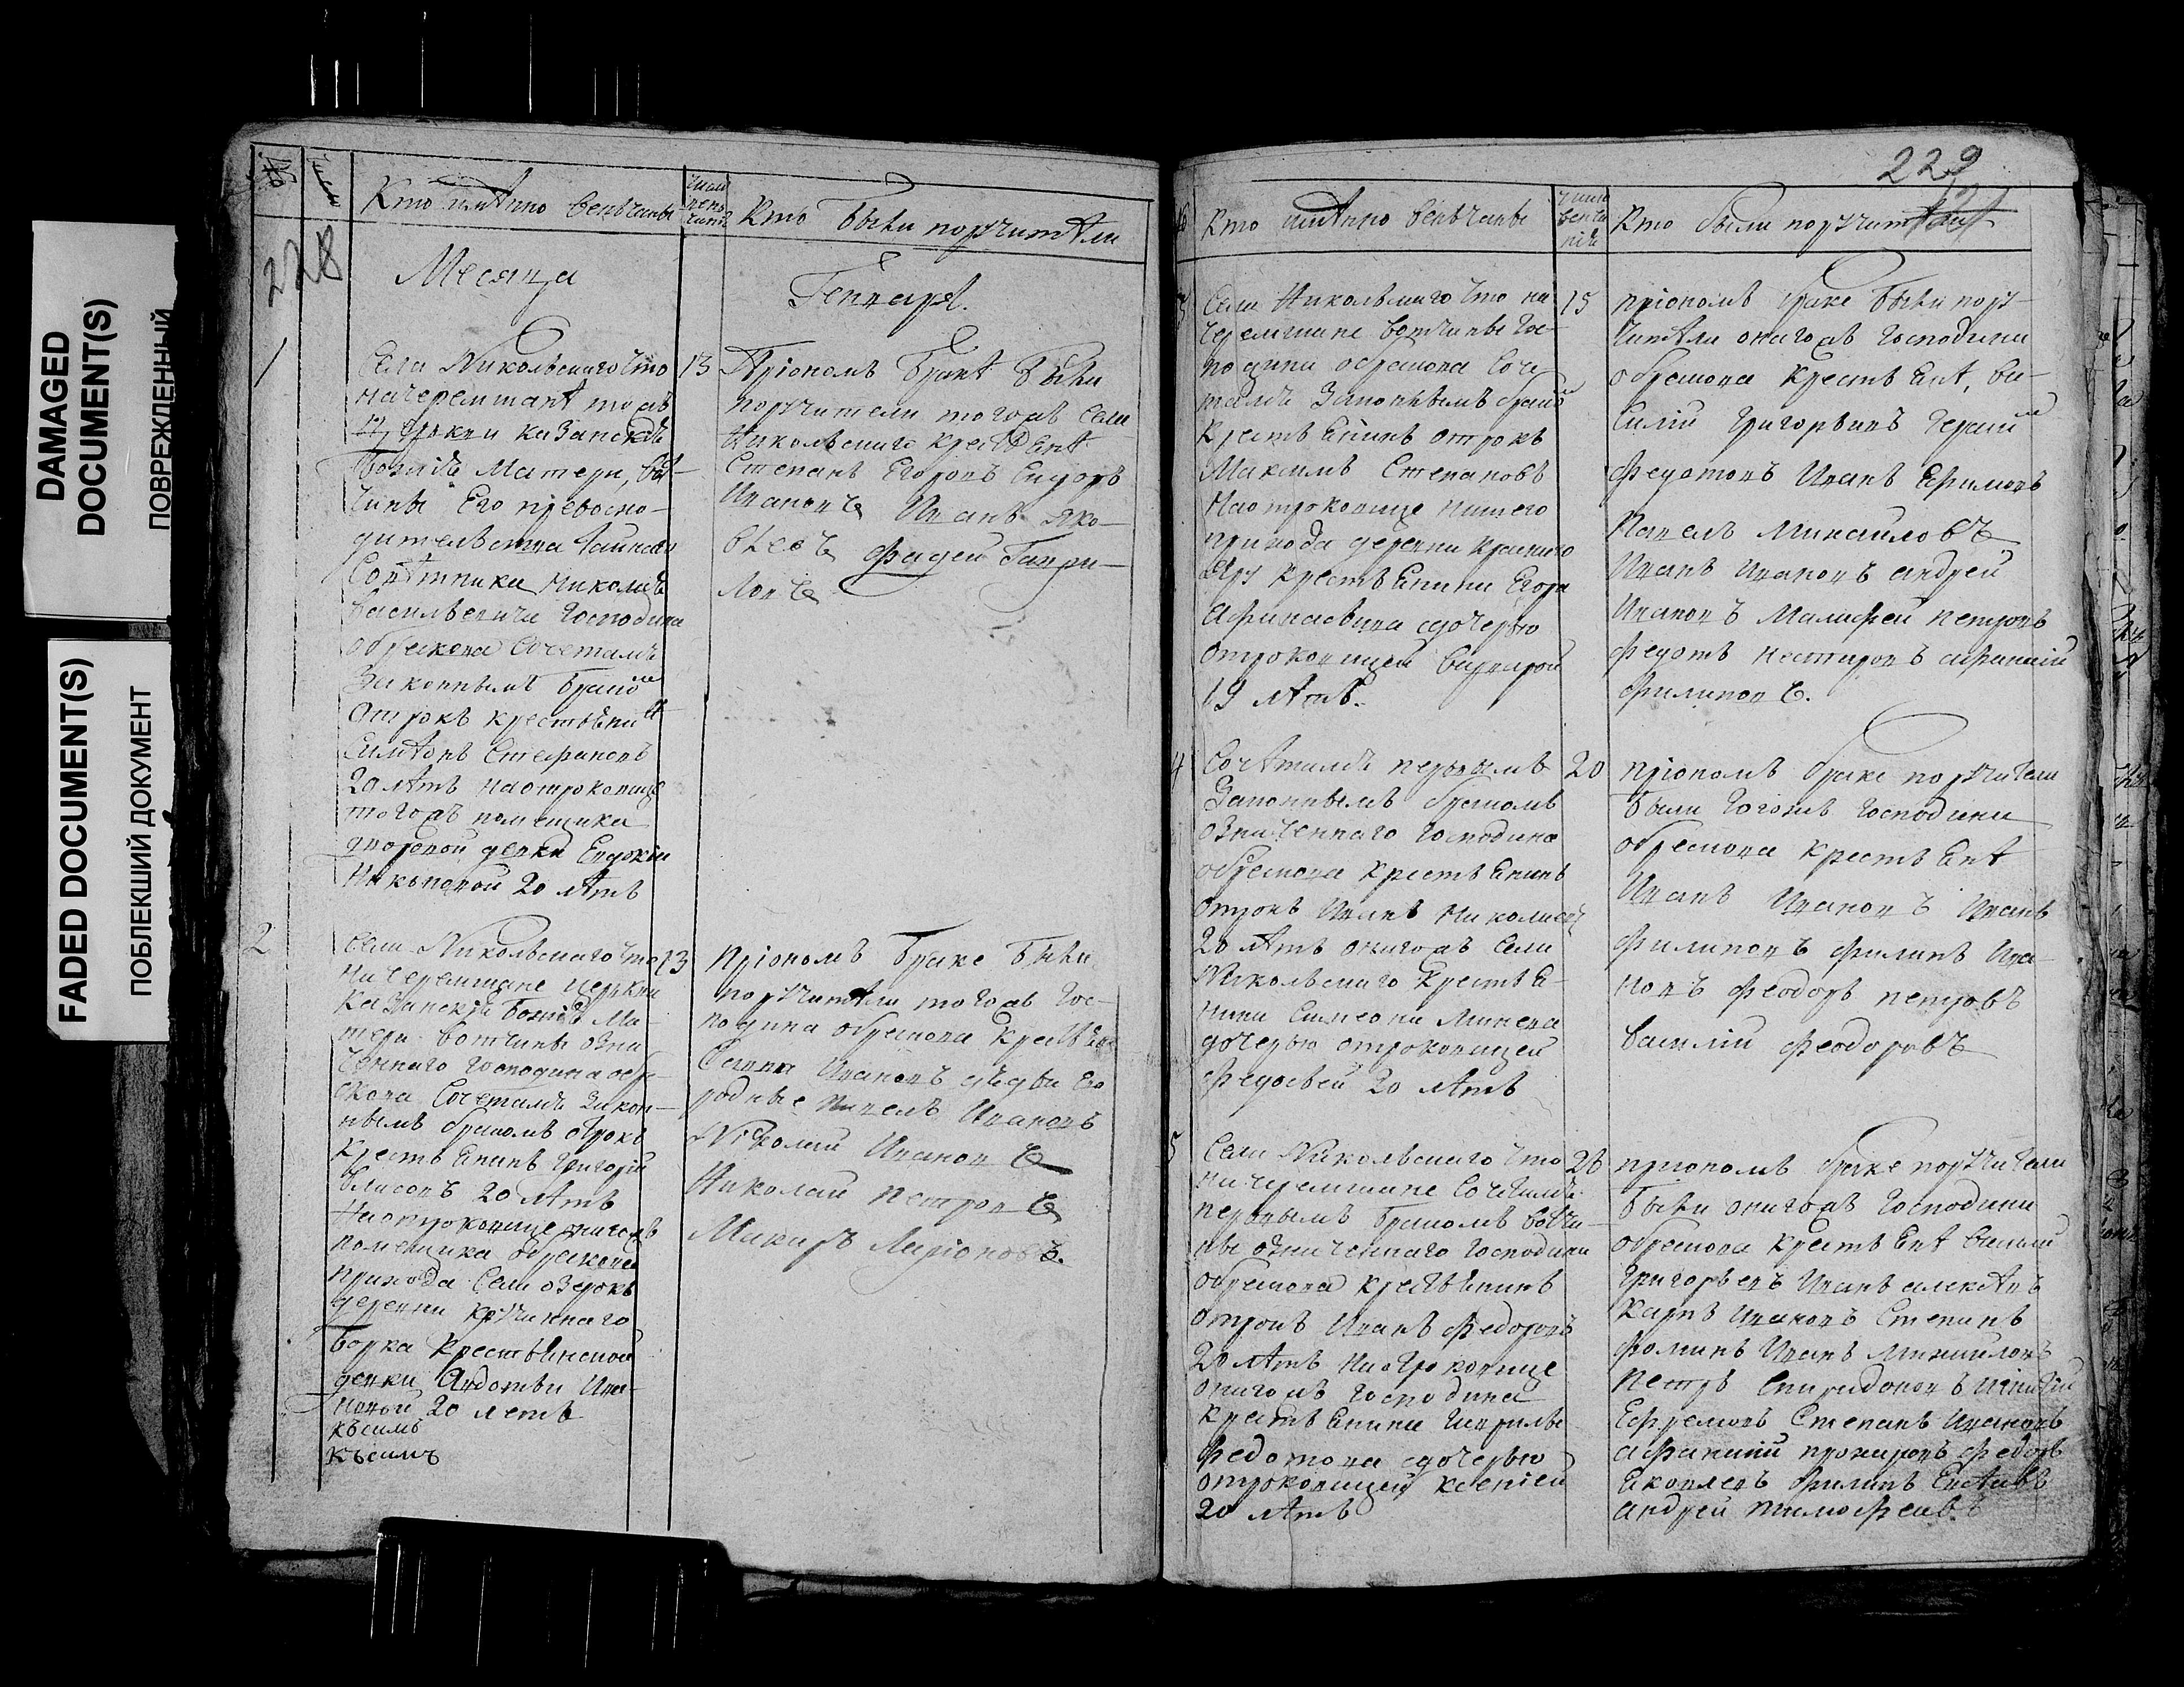 DAMAGED
DOCUMENT(S)
ПОВРЕЖДЕННЫЙ
FADED DOCUMENT(S)
ПОБЛЕКШИЙ ДОКУМЕНТ
228
Кто имѣнно венчаны
Кто были поручитѣли
Месяца
Генваря.
1
Села Никольского что
на черемшанѣ тояжъ
церкви казанскія
Божія Матери, вот-
чины Его превосхо-
дительства тайнаго
Совѣтника Николая
васильевича Господина
обрескова Сочетался
Законнымъ бракомъ
Отрокъ крестьянинъ
Симѣонъ Стефановъ
20 лѣтъ наотроковице
тогожъ помещика
дворовой девки Евдокіи
20 лѣтъ
13
Пріономъ Бракѣ Были
поручители тогожъ Села
Никольского крестьянѣ
Степанъ Егоровъ Сидоръ
Ивановъ Иванъ Яко-
влевъ Фадей Гаври-
ловъ
2
Села Никольского что
на черемшане церкви
Казанскія Божія Ма-
тери вотчины озна-
ченнаго Господина обре-
скова Сочетался закон-
нымъ бракомъ отрокъ
Крестьянинъ Григорій
20 лѣтъ
На отроковице онагожъ
помещика обрескова
прихода Села озерокъ
деревни
борка Крестьянской
девки Авдотьи Ива-
новой 20 летъ
13
пріономъ Браке Были
поручитѣли тогожъ Гос-
подина обрескова Крестьяне
Савва Ивановъ
родные Павелъ Ивановъ
Николай Ивановъ
Николай Петровъ
Макаръ Ларіоновъ.
229
Кто имѣнно венчаны
Кто были поручитѣли
3
Села Никольского что на
черемшане вотчины Гос-
подина обрескова Соче-
тался Законнымъ бракомъ
Крестьянинъ отрокъ
Максимъ Степановъ
Наотроковице нашего
прихода деревни краснаго
Яру крестьянина Егора
Афанасьева здочерью
отроковицей варварой
19 лѣтъ.
15
пріономъ браке были пору-
читѣли онагожъ Господина
обрескова крестьянѣ, ва-
силій Григорьевъ Герасимъ
Федотовъ Иванъ Ефимовъ
Павелъ Михайловъ
Иванъ Ивановъ андрей
Ивановъ Малафей петровъ
федотъ нестеровъ афанасій
филиповъ.
4
Сочѣтался первымъ
Законнымъ бракомъ
означеннаго Господина
обрескова крестьянинъ
отрокъ Иванъ Николаевъ
20 лѣтъ онагожъ Села
Никольского крестья-
нина Симеона Минеева
дочерью отроковицей
федосьей 20 лѣтъ
20
пріономъ браке поручители
были тогожъ Господина
обрескова крестьянѣ
Иванъ Ивановъ Иванъ
филиповъ филипъ Ива-
новъ Феодоръ петровъ
василій феодоровъ
5
Села Никольского что
на черемшане Сочетался
первымъ бракомъ вотчи-
ны означеннаго Господина
обрескова крестьянинъ
отрокъ Иванъ Федоровъ
20 лѣтъ на отроковице
онагожъ Господина
крестьянина Гаврилы
Федотова здочерью
отроковицей ксенией
20 лѣтъ
26
пріономъ браке поручители
были онагожъ Господина
обрескова крестьянѣ василій
григорьевъ Иванъ
карпъ Ивановъ Степанъ
фоминъ Иванъ михайловъ
петръ спиридоновъ игнатій
Ефремовъ Степанъ Ивановъ
афанасий прохоровъ федоръ
яковлевъ филипъ
андрей тимофеевъ